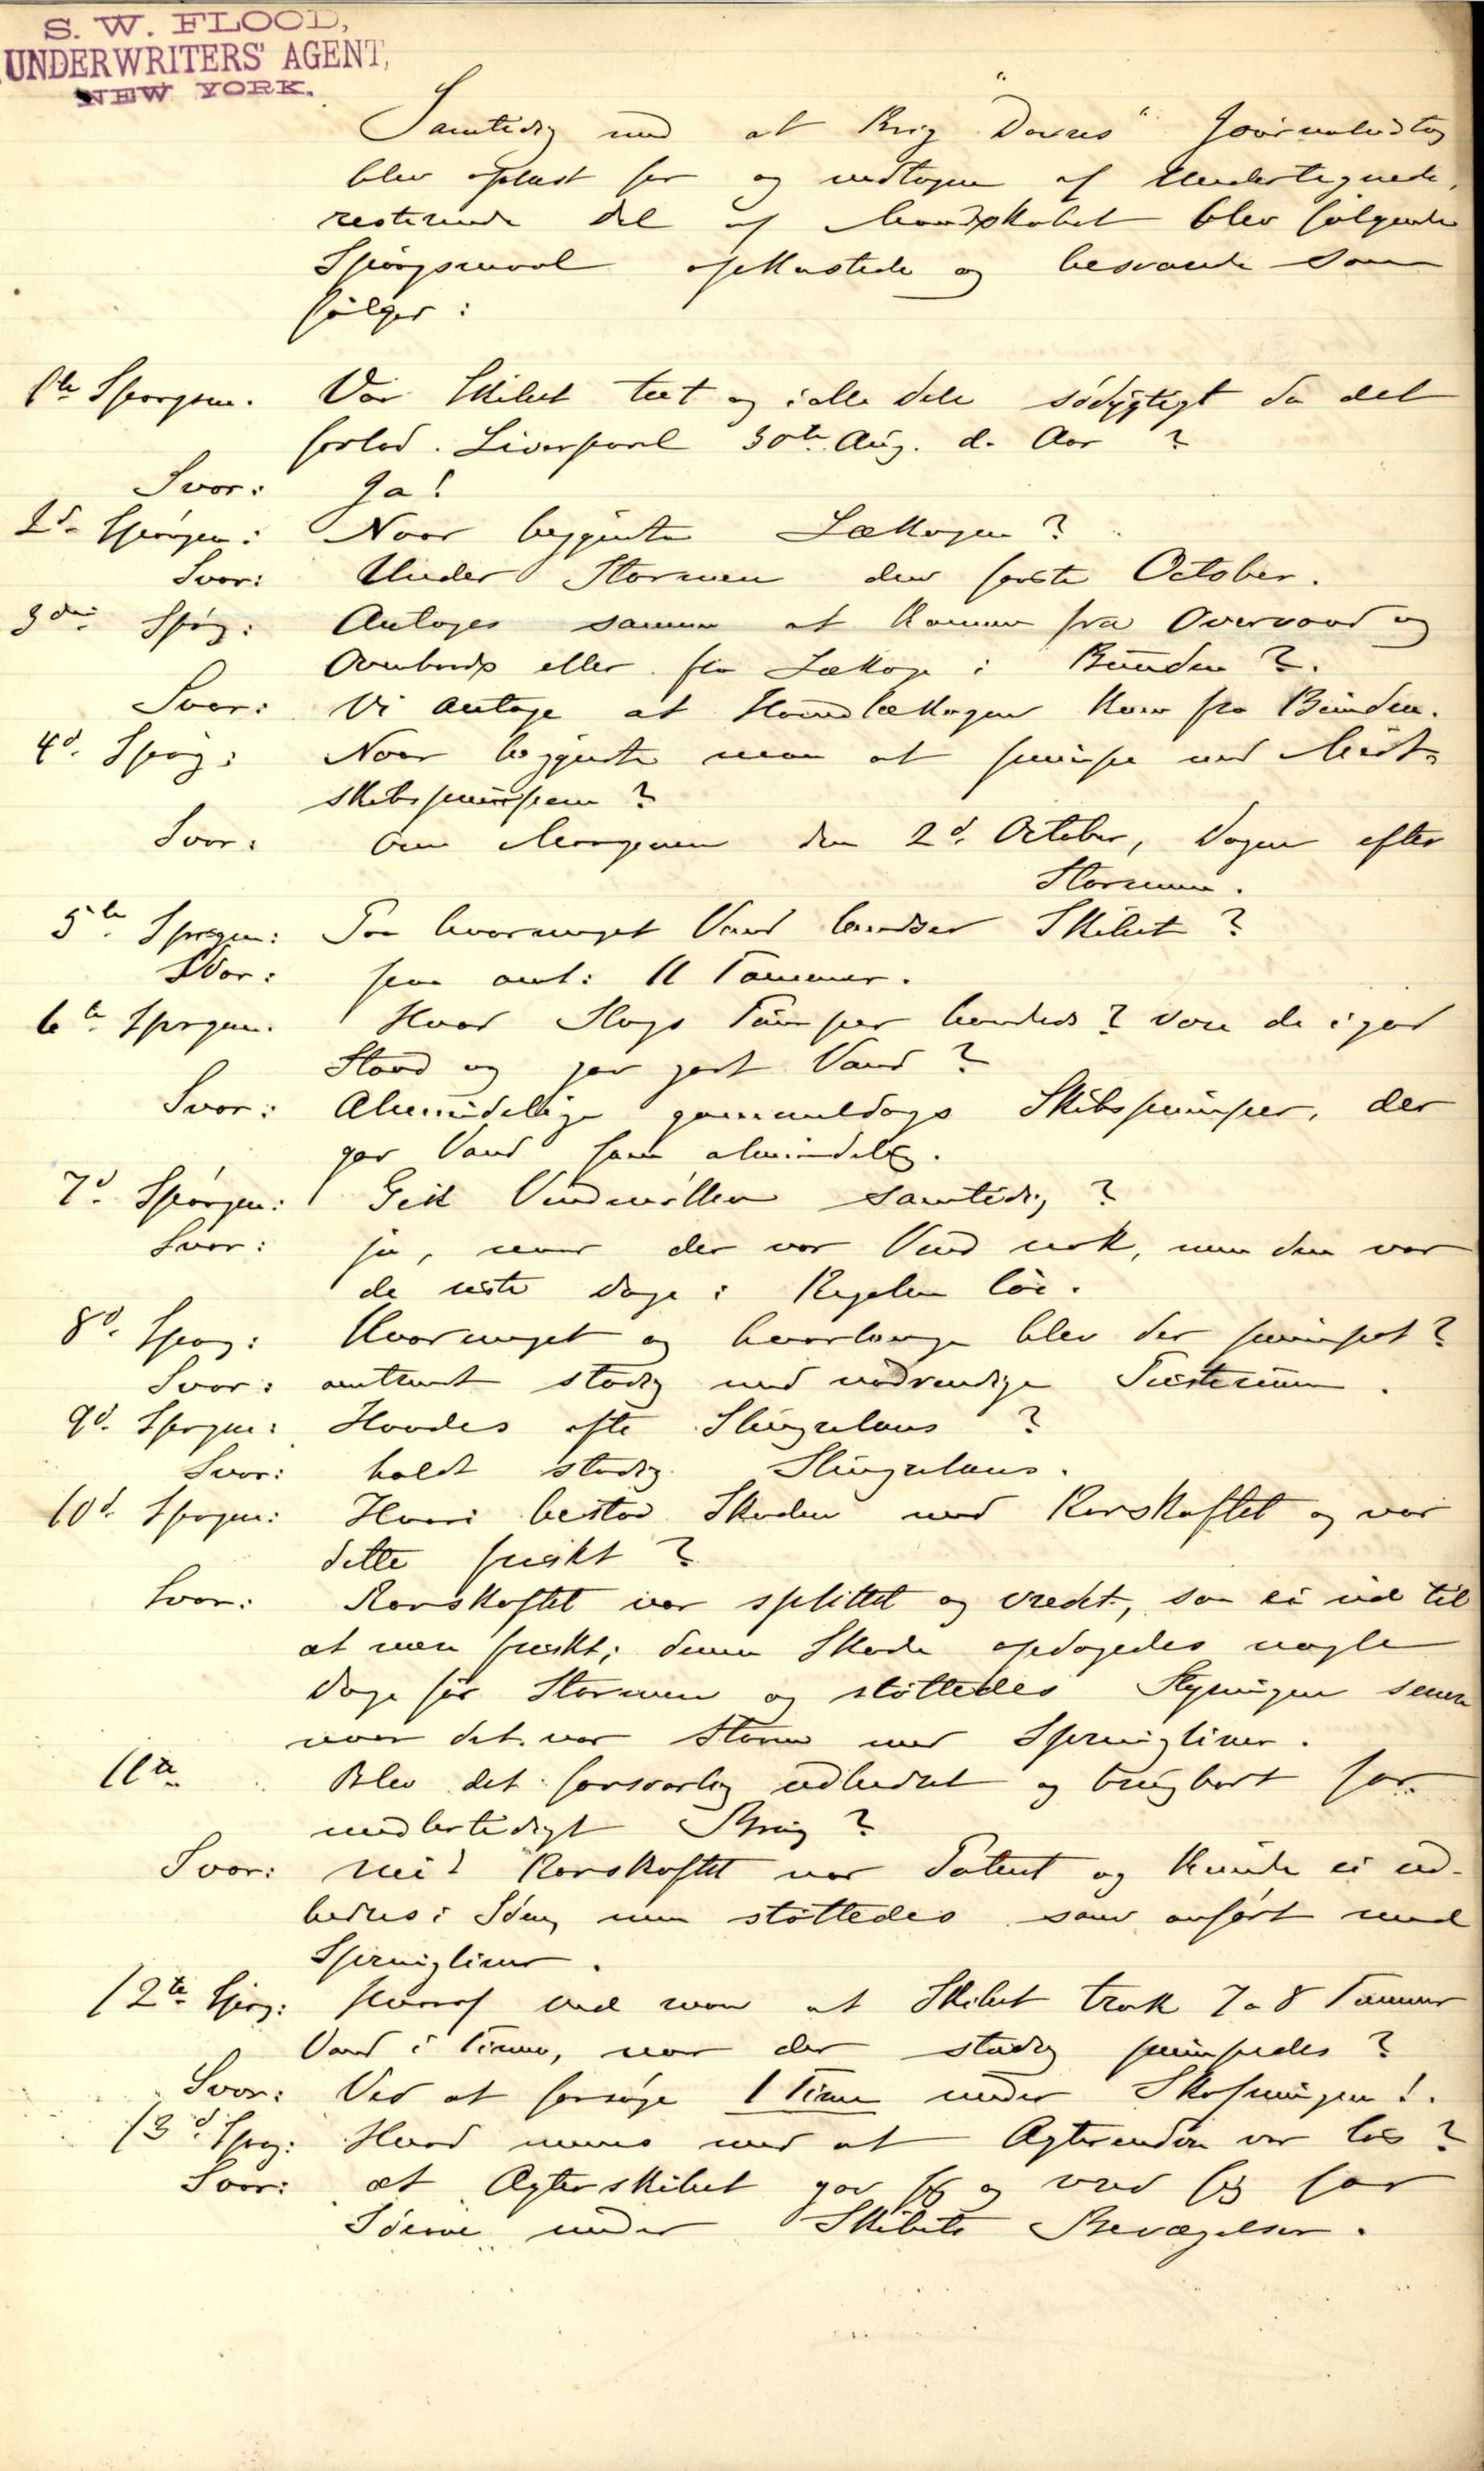 S. W. FLOOD,
UNDERWRITERS' AGENT,
NEW YORK.
Samtidig med at Brig "Dovres" Journaludtog
blev oplæst for og vedtagen af Undertegnede,
resterende Del af Mandskabet blev følgende
Spørgsmaal opkastede og besvarede som
følger:
1te Spørgsm. Var Skibet tæt og i alle dele sødygtigt da det
forlod Liverpool 30te Aug. d. Aar?
Svar: Ja!
2d Spørgsm: Naar begyndte Lækagen?
Svar: Under Stormen den første October.
3die Spørg: Antages samme at komme fra Overvand og
Ovenbords eller fra Lækage i Bunden?
Svar: Vi antage at Hovedlækagen kom fra Bunden.
4d. Spørg: Naar begyndte man at pumpe med Midt-
skibspumpen?
Svar: Om Morgenen den 2d October, Dagen efter
Stormen.
5te Spørgsm: Paa hvormeget Vand lændser Skibet?
Svar: paa omt: 11 Tommer.
6te Spørgsm. Hvad Slags Pumper havdes? vare de i god
Stand og gav godt Vand?
Svar: Almindelige gammeldags Skibspumper, der
gav Vand som almindelig.
7d. Spørgsm: Gik Vindmøllen samtidig?
Svar: ja, naar der var Vind nok, men den var
de siste Dage i Regelen løi.
8d. Spørg: Hvormeget og hvorlænge blev der pumpet?
Svar: omtrent stadig med nødvendige
9d. Spørgsm: Havdes ofte Slingrelæns?
Svar: holdt stadig Slingrelæns.
10d. Spørgsm: Hvori bestod Skaden med Rorskaftet og var
dette friskt?
Svar: Rorskaftet var splittet og vredt, saa ei ud til
at være friskt; denne Skade opdagedes nogle
Dage før Stormen og støttedes Styringen senere
naar det var Storm med Springliner.
11te Blev det forsvarlig udbedret og brugbart for
midlertidigt Brug?
Svar: nei! Rorskaftet var Patent og kunde ei ud-
bedres i Søen, men støttedes som anført med
Springliner.
12te Spørg: Hvoraf ved man at Skibet trak 7 a 8 Tommer
Vand i Timen, naar der stadig pumpedes?
Svar: Ved at forsøge 1 Time under Skafningen!
13d Spørg: Hvad menes med at Agterenden var løs?
Svar: at Agterskibet gav sig og vred sig for
Søerne under Skibets Bevægelser.